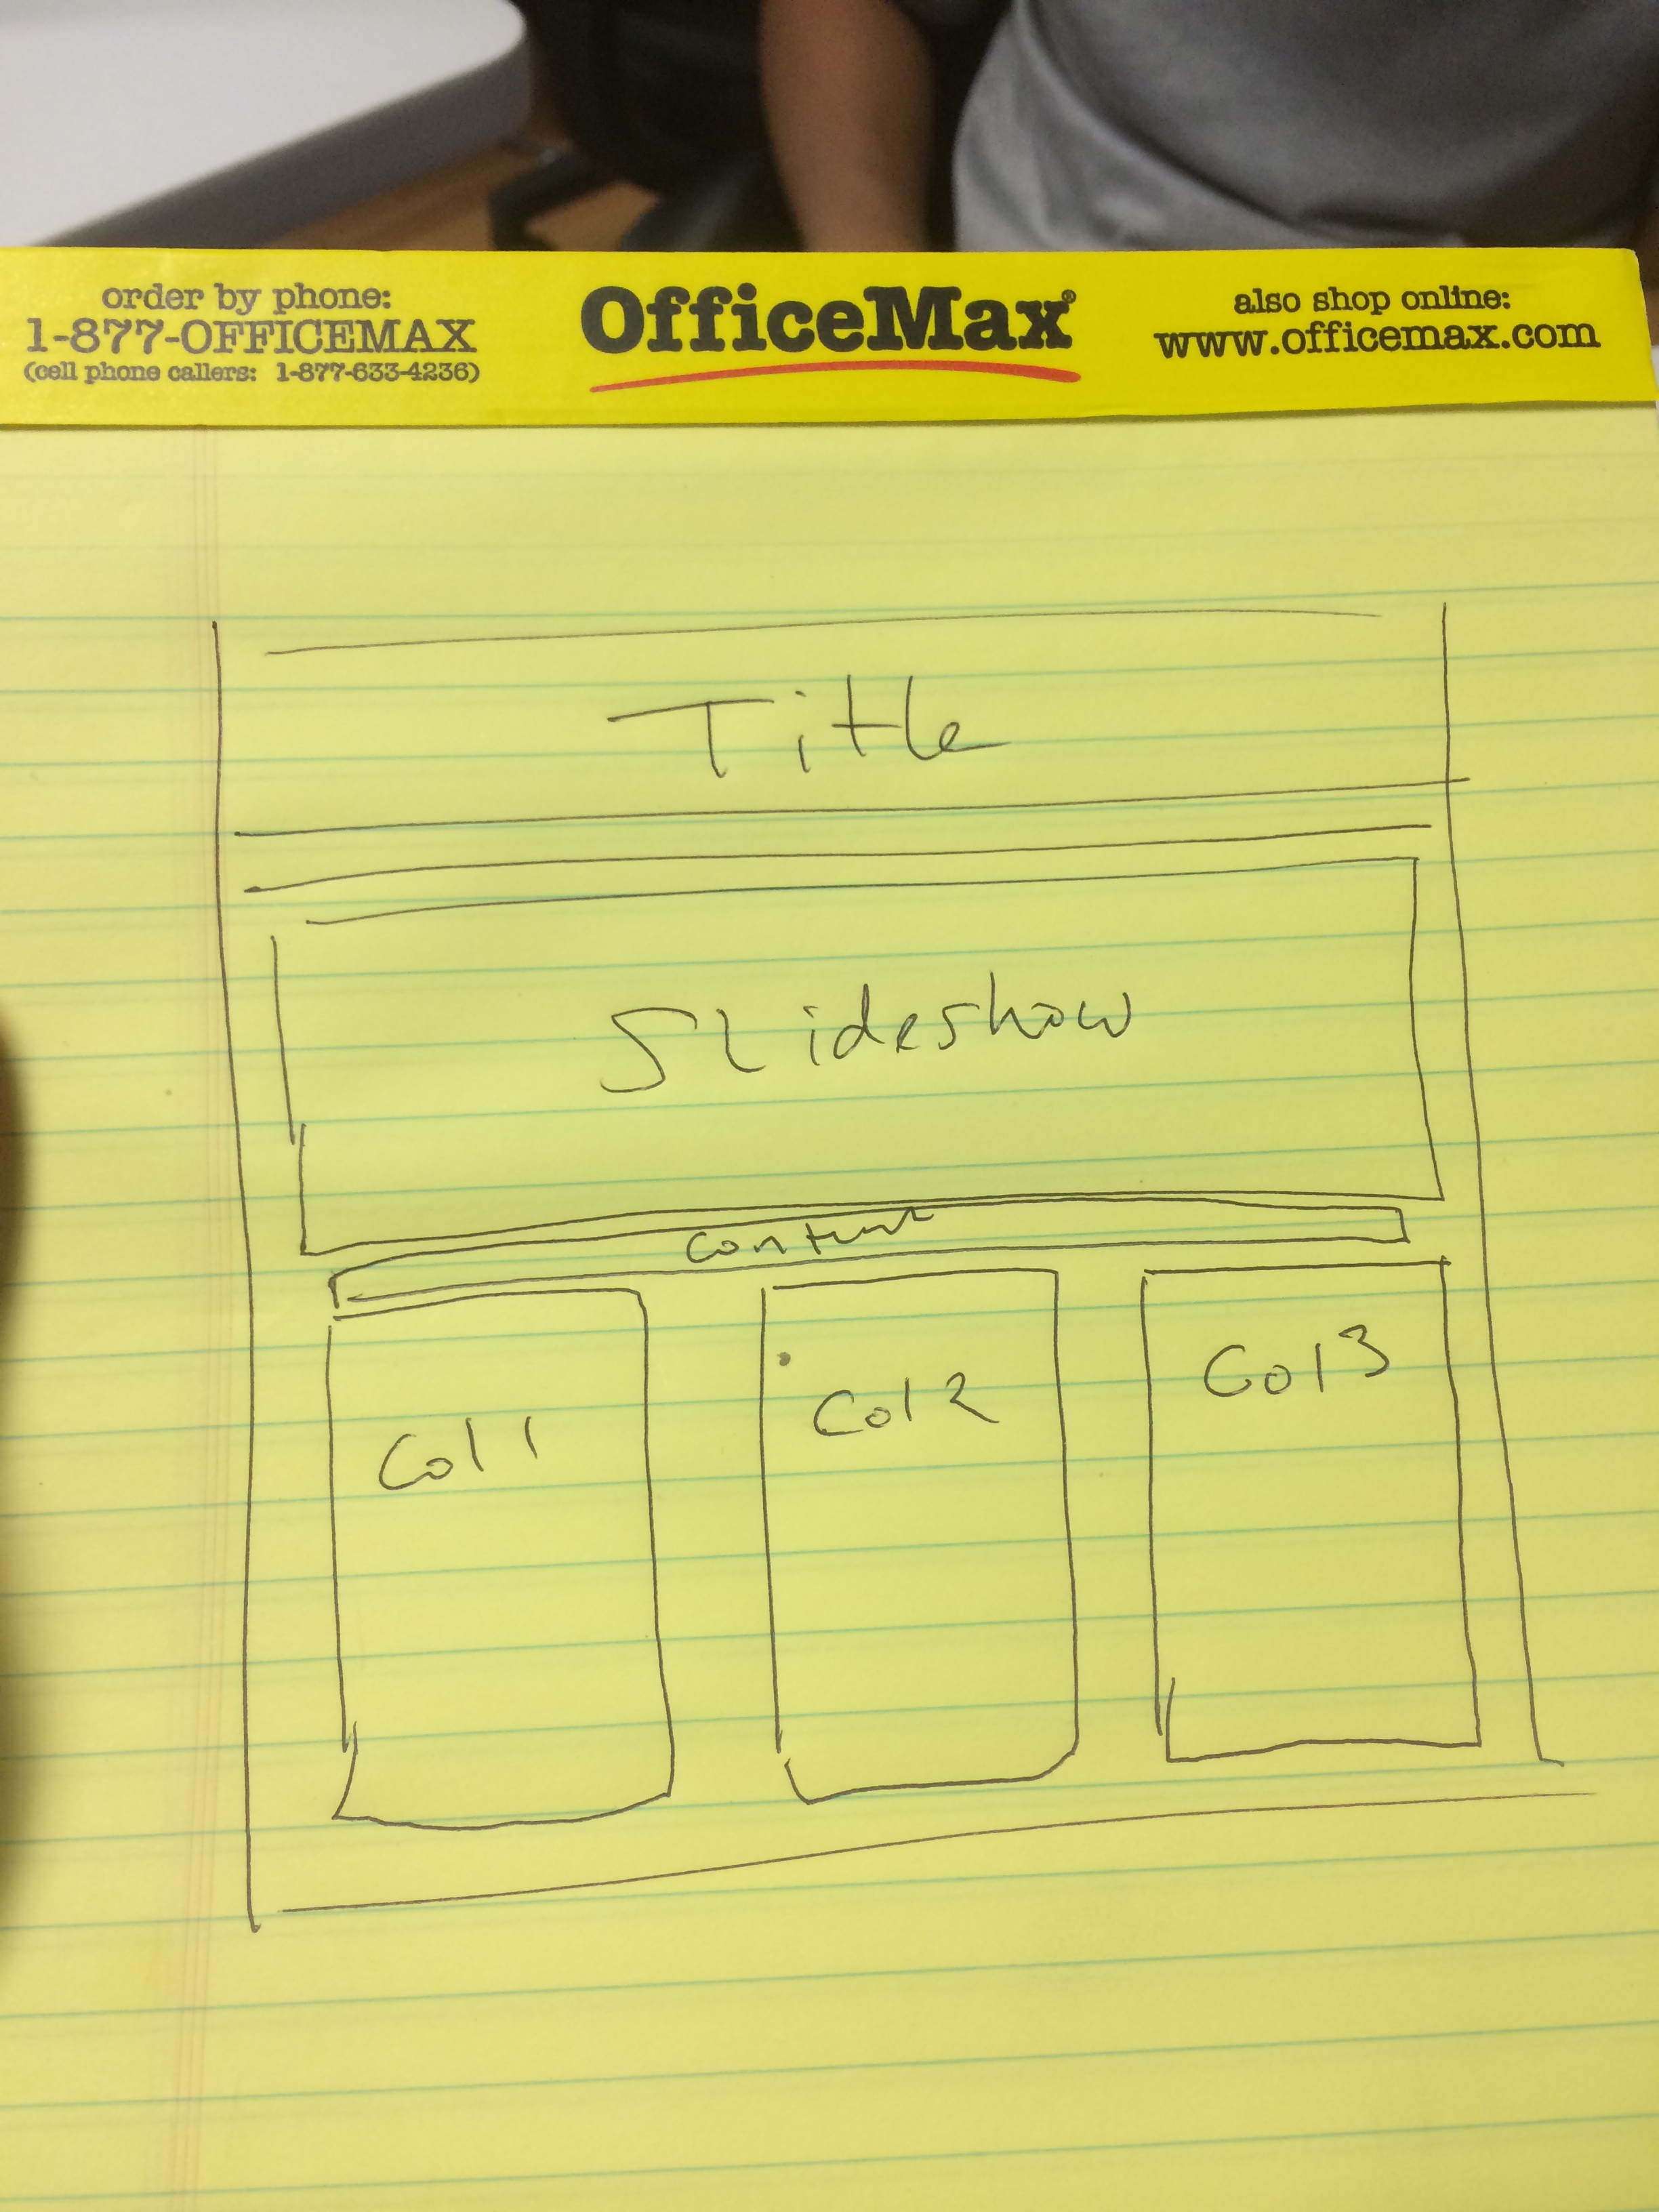 order by phone:
1-877-OFFICEMAX
(cell phone callers: 1-877-633-4236)
OfficeMax®
also shop online:
www.officemax.com
Title
Slideshow
Content
Col 1
Col 2
Col 3